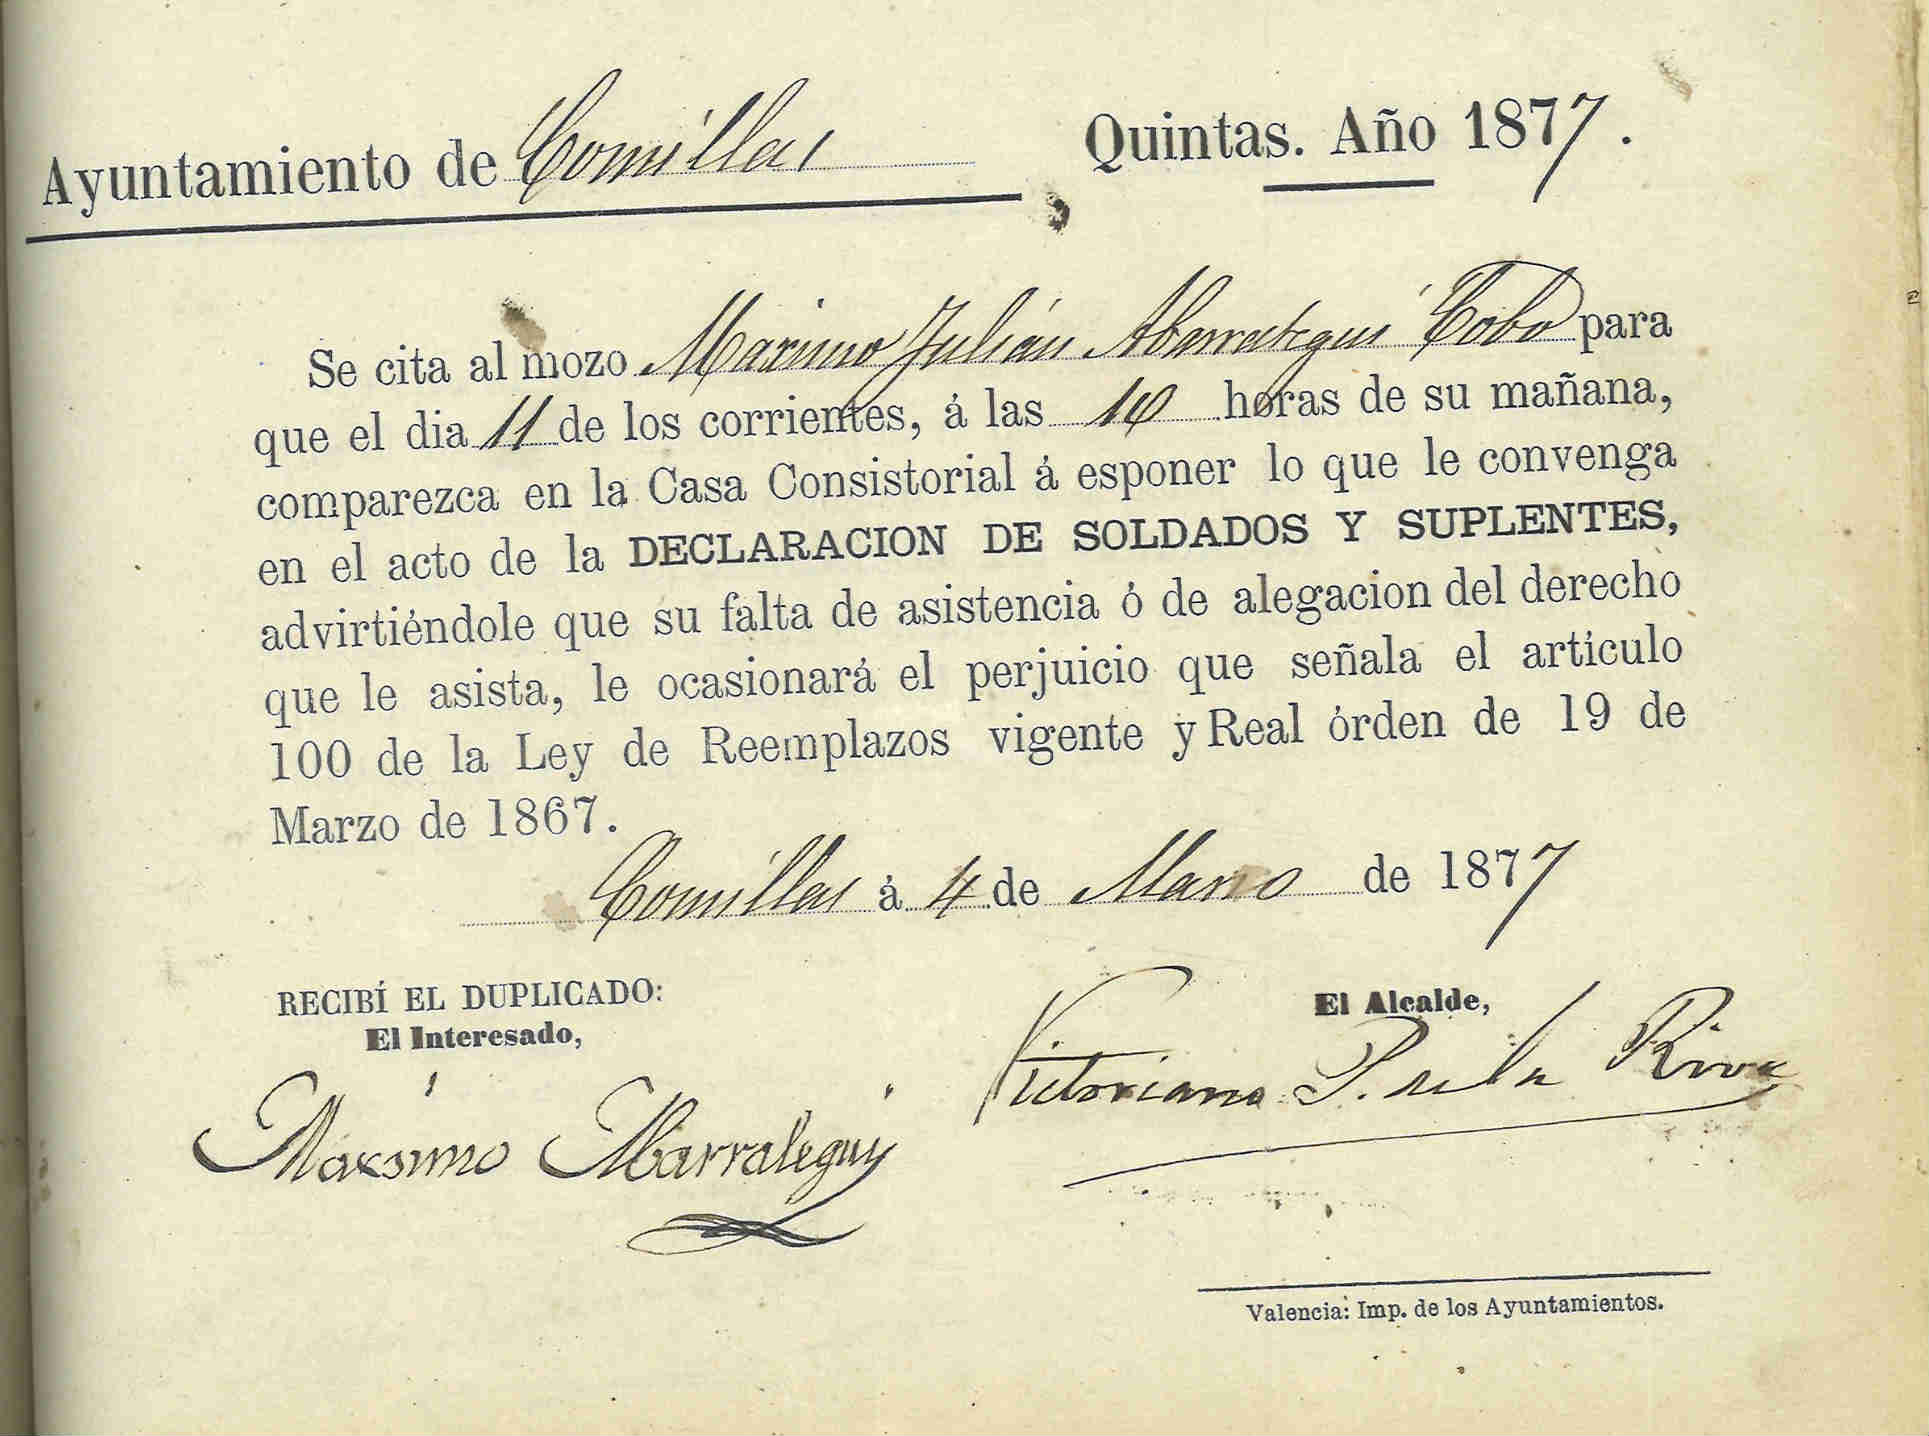 Ayuntamiento de Comillas
Quintas. Año 1877.
Se cita al mozo Maximo Julián Abarrategui Cobo para
que el dia 11 de los corrientes, á las 10 horas de su mañana,
comparezca en la Casa Consistorial á esponer lo que le convenga
en el acto de la DECLARACION DE SOLDADOS Y SUPLENTES,
advirtiéndole que su falta de asistencia ó de alegacion del derecho
que le asista, le ocasionará el perjuicio que señala el artículo
100 de la Ley de Reemplazos vigente y Real órden de 19 de
Marzo de 1867.
Comillas á 4 de Marzo de 1877
RECIBÍ EL DUPLICADO:
El Interesado,
Macsimo Abarrateguy
El Alcalde,
Victoriano P. de la Riva
Valencia: Imp. de los Ayuntamientos.